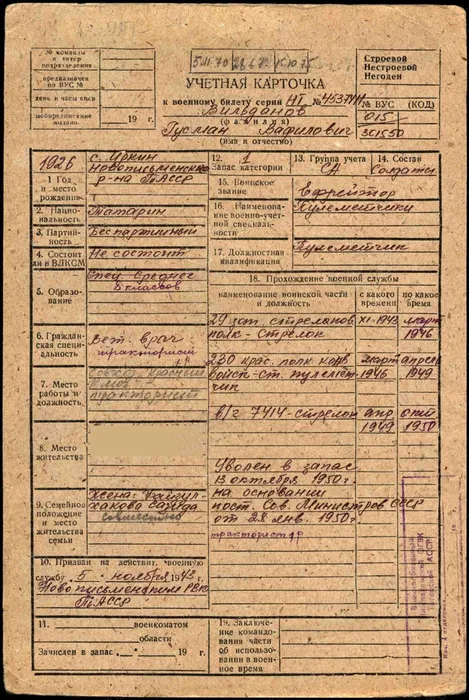 № команды
и литер
подразделения
предназначен
по ВУС М
день и часы явки
мобпредписание
выдано
19 г.
5.III.70 15.10.75
УЧЕТНАЯ КАРТОЧКА
к военному билету серии НГ №
Вильданов
(фамилия)
Гусман Вафилович
(имя и отчество)
Строевой
Нестроевой
Негоден
№ ВУС (КОД)
015
301550
1926
с. Иркин
Новописменский
р-на ТАССР
1 Год
и место
рождения
2. Национальность
Татарин
3. Партийность
Беспартийный
4. Состоит
ли в ВЛКСМ
Не состоит
5. Образование
Спец Среднее
8 классов
6. Гражданская
специальность
Вет. врач
тракторист
7. Место
работы и
должность
Совхоз Красный
тракторист
8. Место
жительства
9. Семейное
положение
и место
жительства
семьи
Жена:
совместно
10. Призван на действит. военную
службу 5 ноября 1943 г.
Новописьменским РВК
ТАССР
11. военкоматом
области
Зачислен в запас 19 г.
12. 1
Запас категории
13. Группа учета
СА
14. Состав
Солдаты
15. Воинское
звание
Ефрейтор
16. Наименование
военно-учетной
специальности
Пулеметчики
17. Должностная
квалификация
Пулеметчик
18. Прохождение военной службы
наименование воинской части
и должность
с какого
времени
по какое
время
29 зап. стрелковый
полк - стрелок
XI-1943
март
1946
230 крас. полк конв.
войск - ст. пулемет-
чик
март
1946
апрель
1949
в/ч 7414 - стрелок
апр
1949
окт
1950
Уволен в запас
13 октября 1950 г.
на основании
пост. Сов. Министров СССР
от 28 янв. 1950 г.
тракторист
19. Заключение
командования
части об
использовании
в военное
время